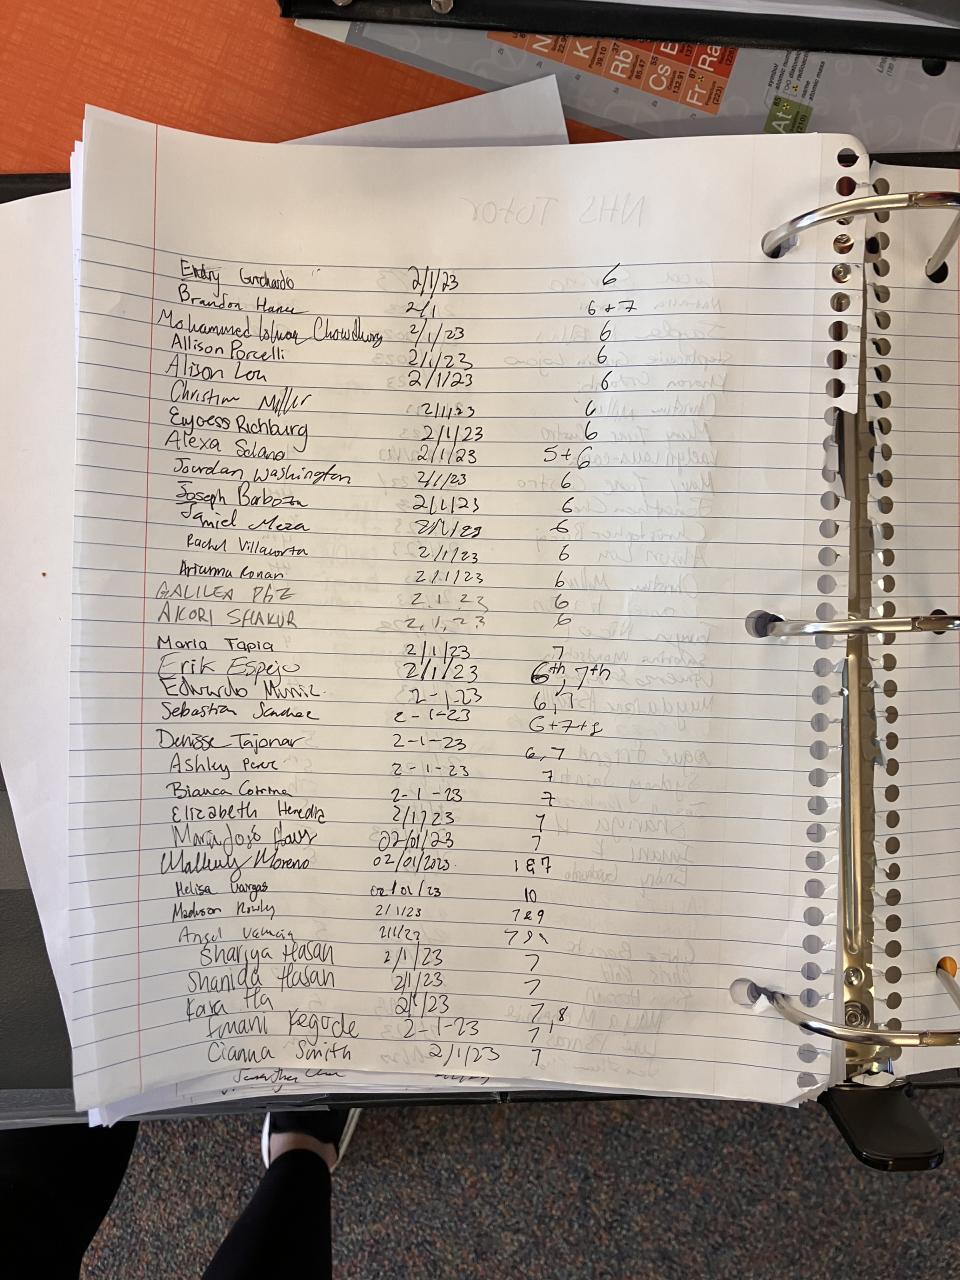 N
K
39.10
Rb
85.47
Cs
132.91
Fr
(223)
Ra
At
(210)
symbol
name
atomic mass
NHS Tutor
2/1/23 6
Brandon 2/1 6+7
Mohammed Chowdhury 2/1/23 6
Allison Porcelli 2/1/23 6
Alison Lou 2/1/23 6
Christian Miller 2/1/23 6
Richburg 2/1/23 6
Alexa Solano 2/1/23 5+6
Jourdan Washington 2/1/23 6
Joseph Barboza 2/1/23 6
Jamiel Meza 2/1/23 6
Rachel Villacorta 2/1/23 6
Arianna Ronan 2/1/23 6
GALILEA PAZ 2.1.23 6
AKORI SHAKUR 2,1,23 6
Maria Tapia 2/1/23 7
Erik Espejo 2/1/23 6th, 7th
Edwardo Muniz 2-1-23 6,7
Sebastian Sanchez 2-1-23 6+7+8
Denisse Tajonar 2-1-23 6,7
Ashley Perez 2-1-23 7
Bianca 2-1-23 7
Elizabeth Heredia 2/1/23 7
Maria José 02/01/23 7
Moreno 02/01/2023 1&7
Melisa Vargas 02/01/23 10
Madison Rowley 2/1/23 7&9
Angel Valencia 2/1/23
Shariya Hasan 2/1/23 7
Shanida Hasan 2/1/23 7
Kara Ha 2/1/23 7,8
Imani Kegode 2-1-23 7
Cianna Smith 2/1/23 7